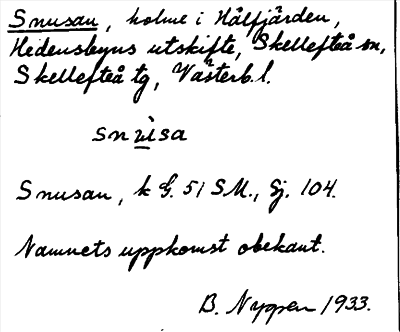 Snusan, holme i Hålfjärden,
Hedensbyns utskifte, Skellefteå sn,
Skellefteå tg, Västerb. l.
snùsa
Snusan, k G. 51 SM., Sj. 104.
Namnets uppkomst obekant.
B. Nyppen 1933.